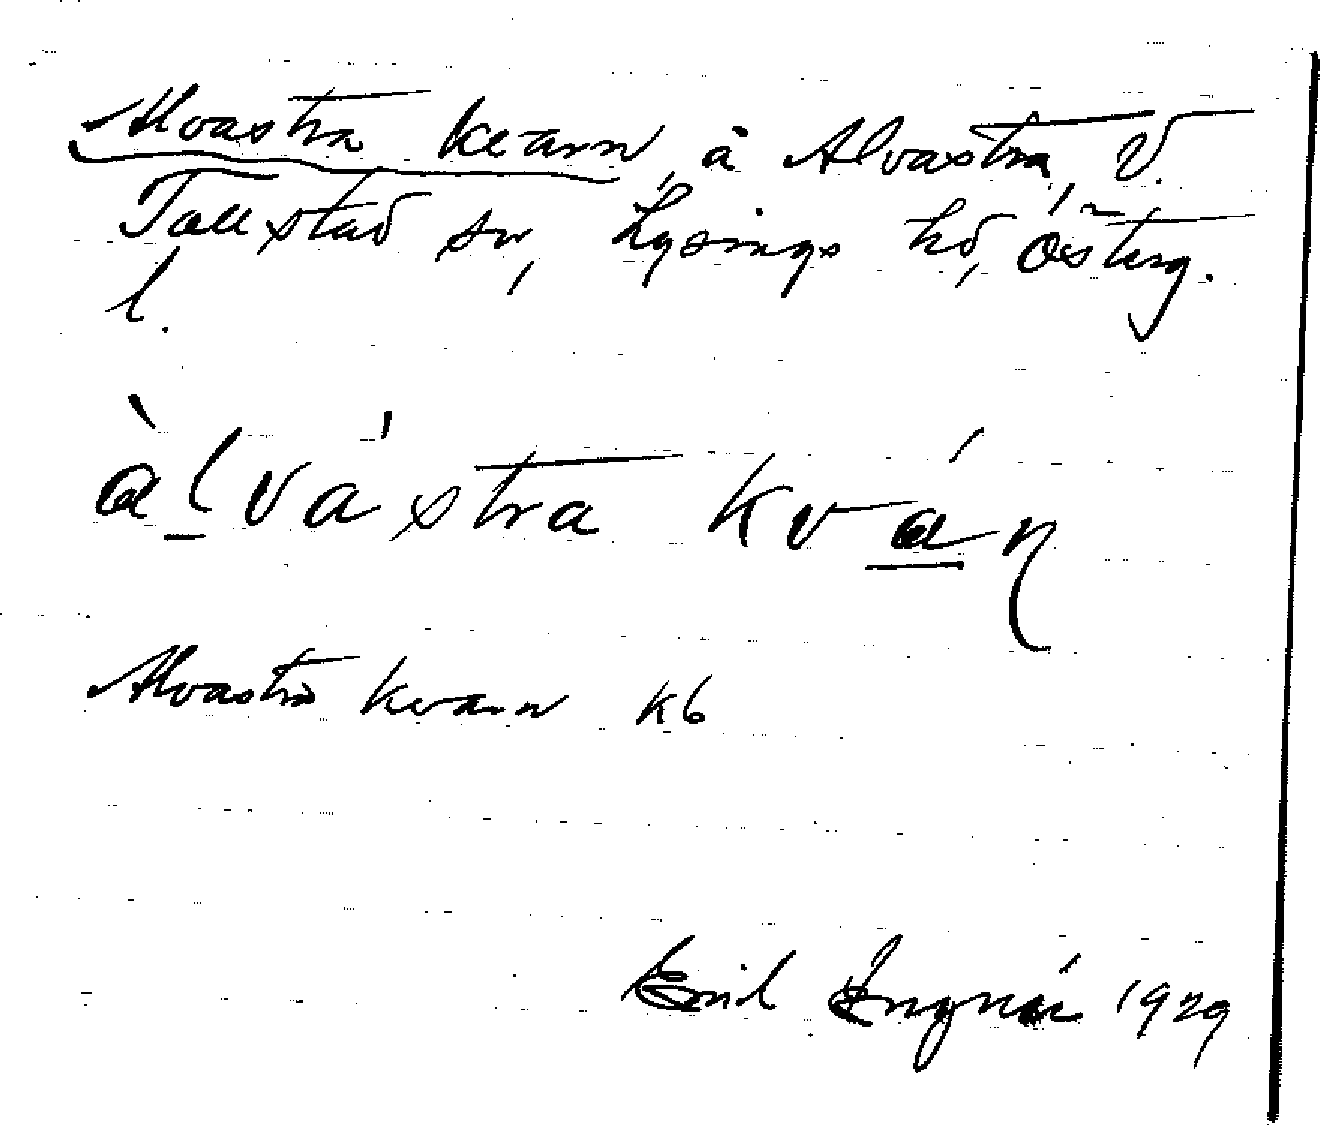 Alvastra kvarn, å Alvastra, V.
Tollstad sn, Lysings hd, Österg.
l.
àlvástra kváɳ
Alvastra kvarn kb
Emil 1929